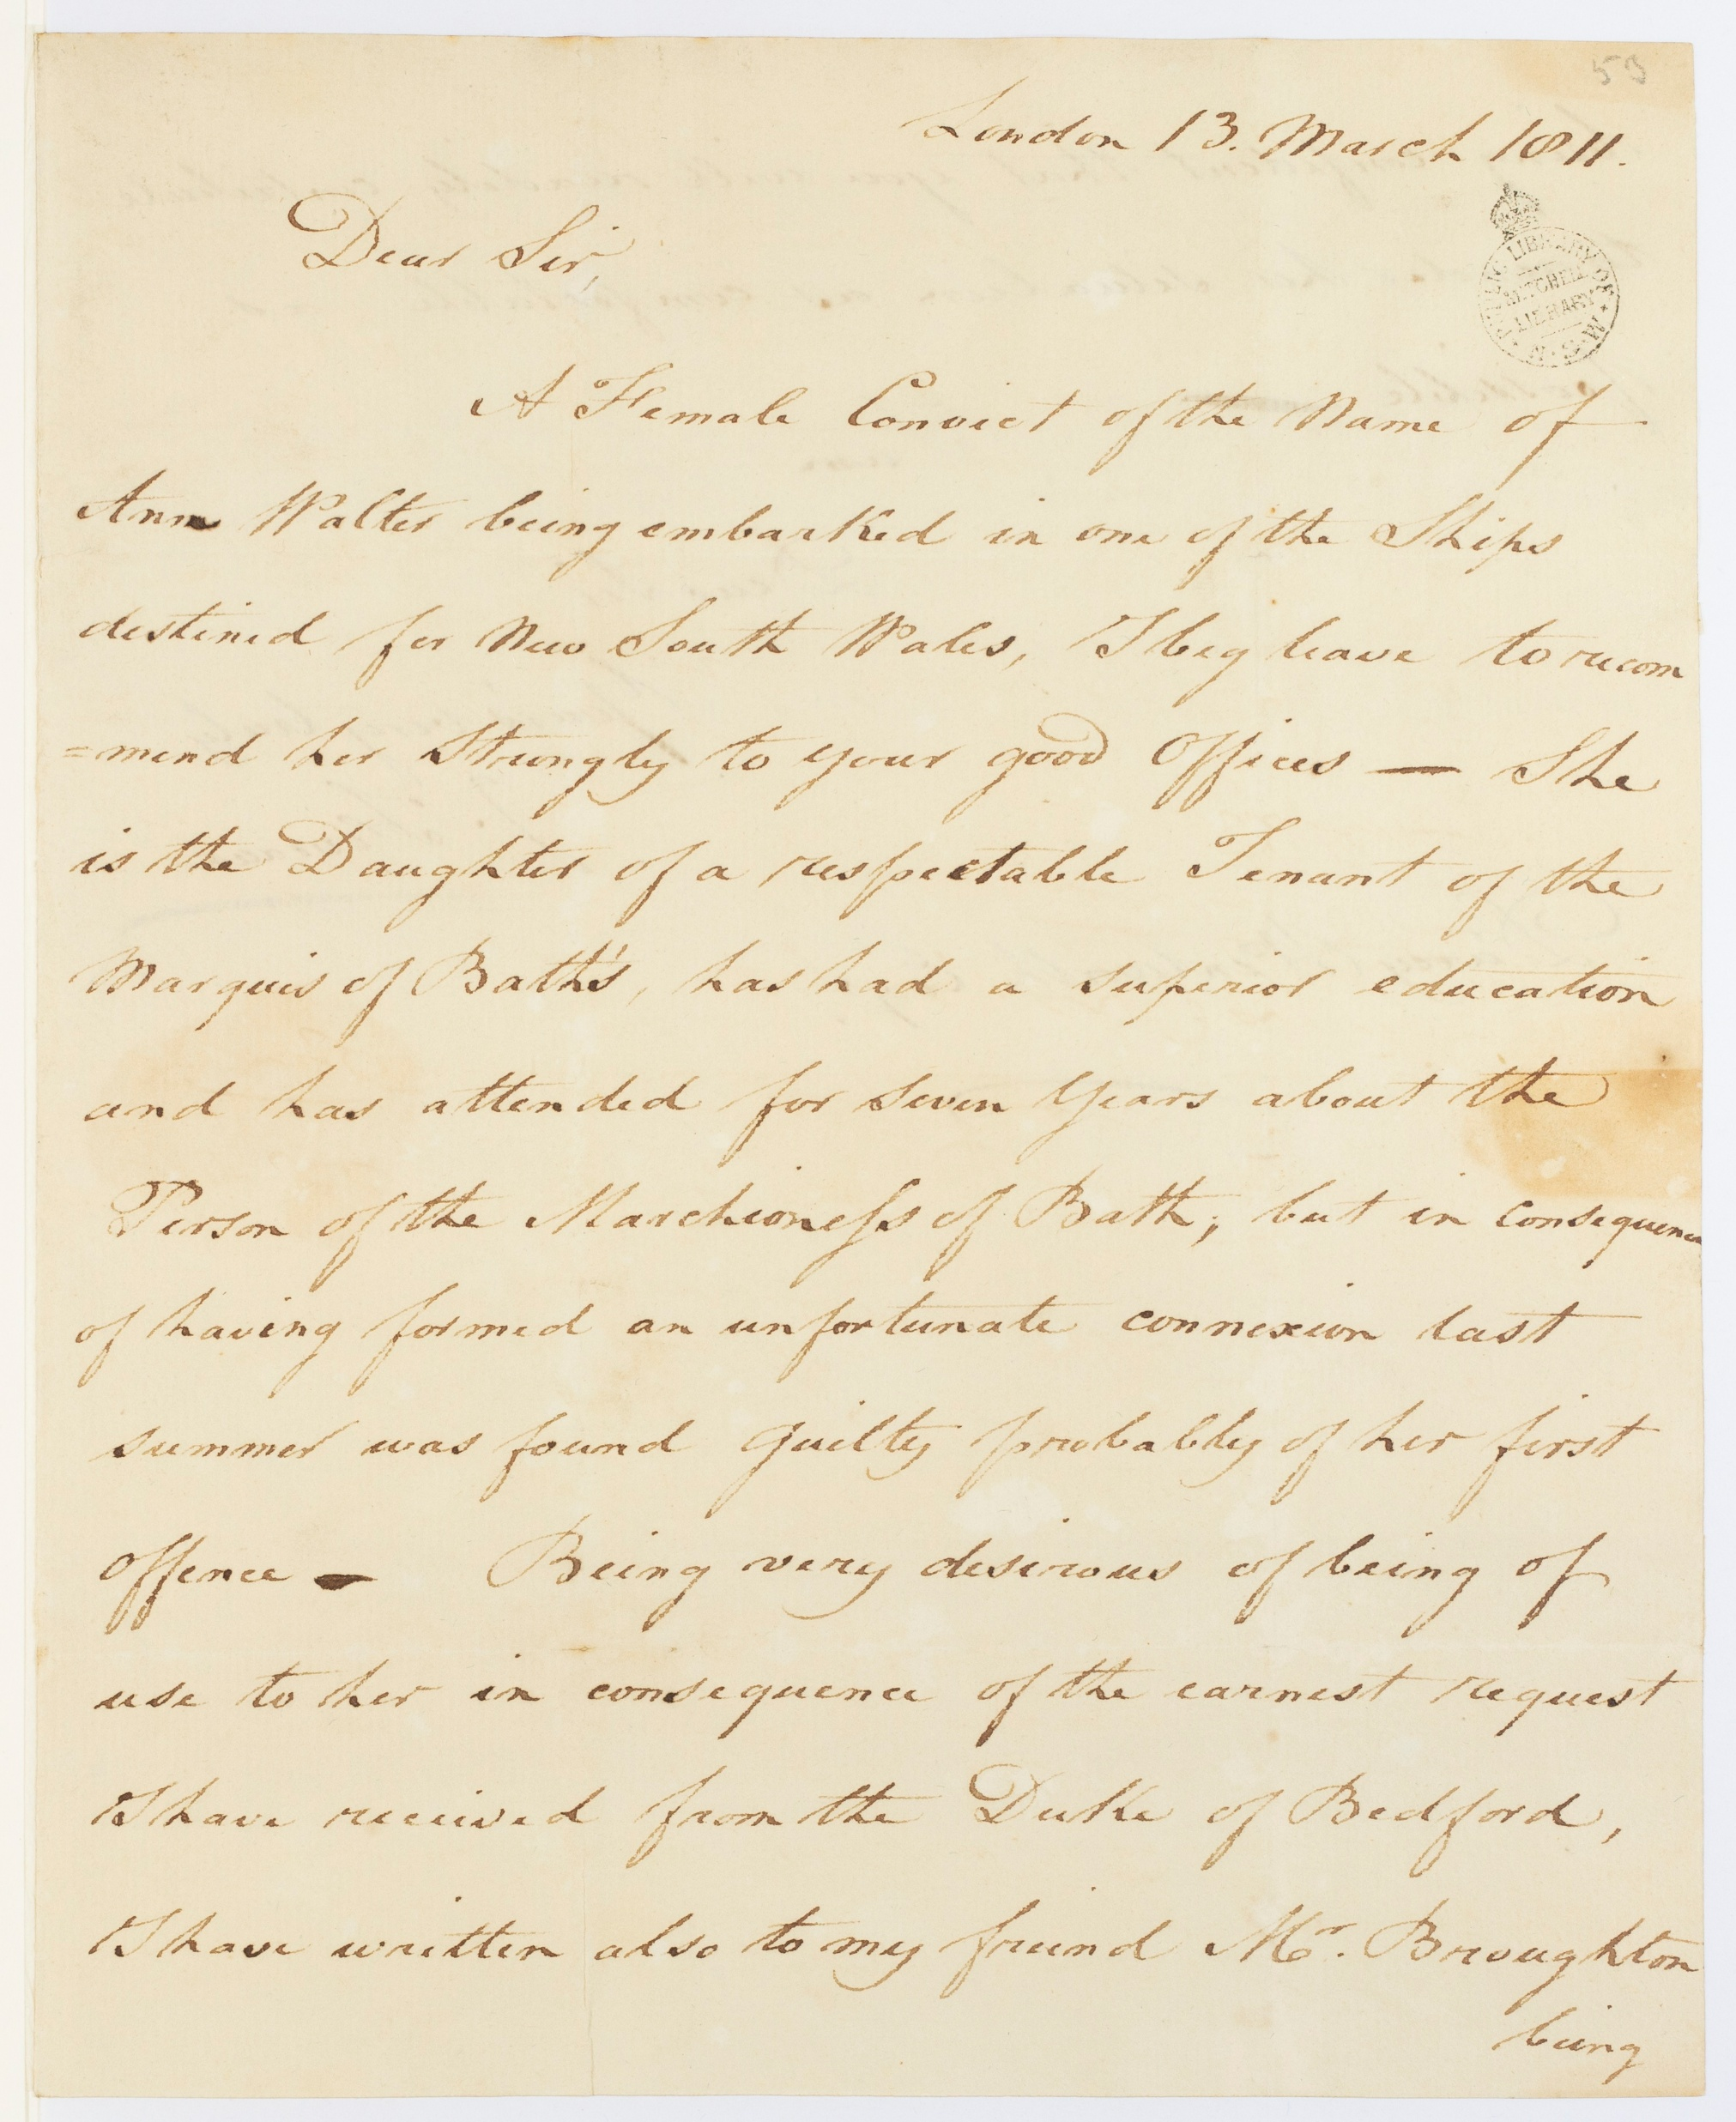 53
London 13. March 1811.
PUBLIC LIBRARY OF N.S.W.
MITCHELL
LIBRARY
Dear Sir,
A Female Convict of the Name of
Ann Walter being embarked in one of the Ships
destined for New South Wales, I beg leave to recom
=mend her Strongly to your good Offices — She
is the Daughter of a respectable Tenant of the
Marquis of Bath's, has had a superior education
and has attended for Seven Years about the
Person of the Marchioness of Bath; but in consequence
of having formed an unfortunate connexion last
summer was found guilty probably of her first
offence — Being very desirous of being of
use to her in consequence of the earnest request
I have received from the Duke of Bedford,
I have written also to my freind Mr. Broughton
being